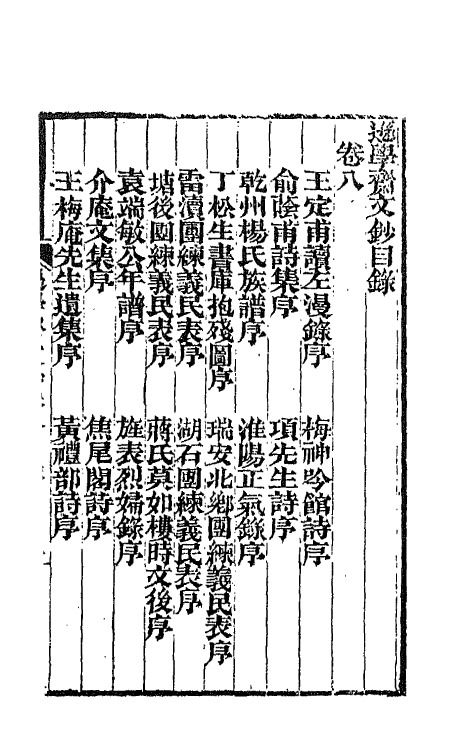 遜學齋文鈔目錄
卷八
王定甫讀左漫錄序 梅神吟館詩序
俞蔭甫詩集序 項先生詩序
乾州楊氏族譜序 淮陽正氣錄序
丁松生書庫抱殘圖序 瑞安北鄉團練義民表序
雷瀆團練義民表序 湖石團練義民表序
塘後團練義民表序 蔣氏莫如樓時文後序
袁端敏公年譜序 旌表烈婦錄序
介庵文集序 焦尾閣詩序
王梅庵先生遺集序 黃禮部詩序